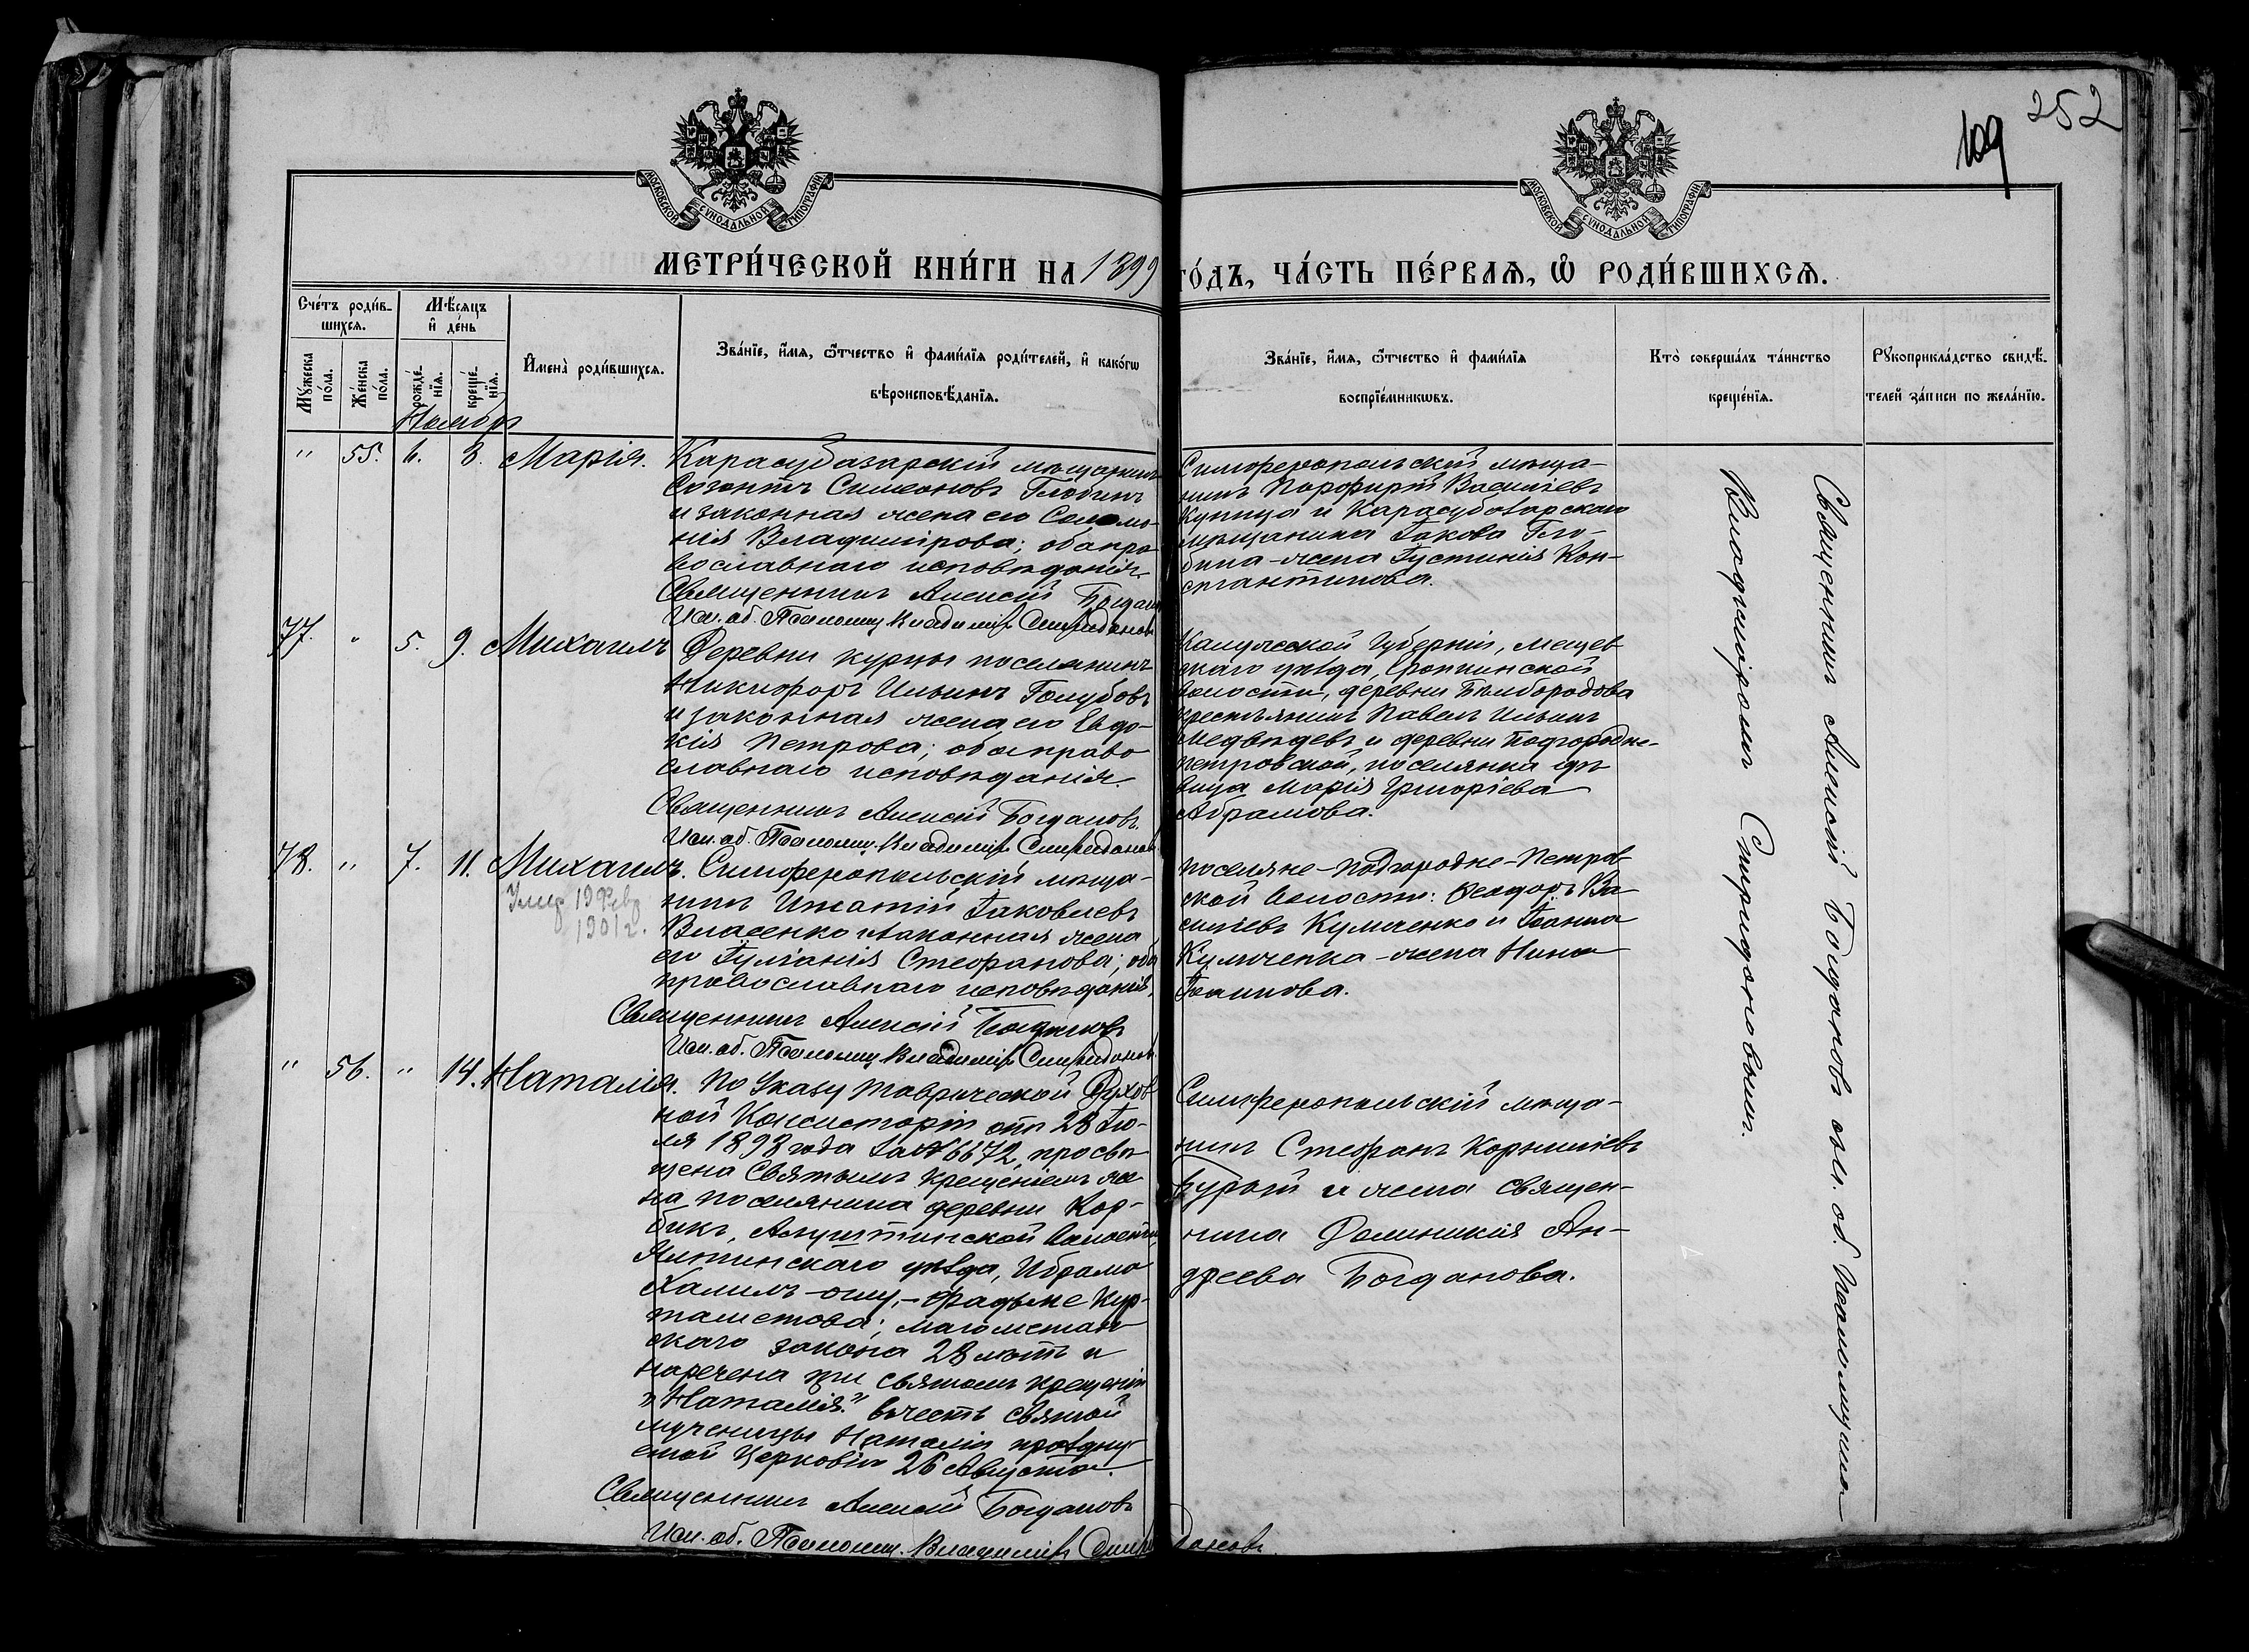 252
109
МОСКОВСКОЙ СѴНОДАЛЬНОЙ ТИПОГРАФІИ
МОСКОВСКОЙ СѴНОДАЛЬНОЙ ТИПОГРАФІИ
МЕТРИ́ЧЕСКОЙ КНИ́ГИ НА 1899 ГО́ДЪ, ЧА́СТЬ ПЕ́РВАЯ, Ѡ РОДИ́ВШИХСЯ.
Сче́тъ роди́в-
шихся.
Мѣ́сяцъ
и҆ де́нь
Мꙋ́жеска
по́ла.
Же́нска
по́ла.
рожде́-
нїя.
креще́-
нїя.
И҆мена̀ роди́вшихся.
Зва́нїе, и҆́мя, ѻ҆́тчество и҆ фами́лїя роди́телей, и҆ како́гѡ
вѣроисповѣ́данїя.
Зва́нїе, и҆́мя, ѻ҆́тчество и҆ фами́лїя
воспрїе́мникѡвъ.
Кто̀ соверша́лъ та́инство
креще́нїя.
Рꙋкоприкла́дство свидѣ́-
телей за́писи по жела́нїю.
Ноябрь
" 55. 6. 8. Марія.
Карасубазарскій мѣщанинъ
Созонтъ Симеоновъ Глобинъ
и законная жена его Соломо-
нія Владимірова; оба пра-
вославнаго исповѣданія.
Священникъ Алексій Богданов
Исп. об. Псаломщ. Владимір Спиридонов
Симферопольскій мѣща-
нинъ Порфирій Васильевъ
Куница и Карасубазарскаго
мѣщанина Іакова Гло-
бина-жена Іустинія Кон-
стантинова.
77. " 5. 9. Михаилъ
Деревни Курцы поселянинъ
Никифоръ Ильинъ Голубовъ
и законная жена его Евдо-
кія Петрова; оба право-
славнаго исповѣданія.
Священникъ Алексій Богдановъ.
Исп. об. Псаломщ. Владимір Спиридонов
Калужской Губерніи, Мещев-
скаго уѣзда,
волости, деревни Бѣлобородова
крестьянинъ Павелъ Ильинъ
Медвѣдевъ и деревни Подгородне-
петровской, поселянка дѣ-
вица Марія Григоріева
Абрамова.
78. " 7. 11. Михаилъ.
Умер 19 Февр
1901 г.
Симферопольскій мѣща-
нинъ Игнатій Іаковлевъ
Власенко и законная жена
его Іуліанія Стефанова; оба
православнаго исповѣданія.
Священникъ Алексій Богдановъ
Исп. об. Псаломщ. Владимір Спиридонов
поселяне-Подгородне-Петров-
ской волости: Феодоръ Ва-
сильевъ Куличенко и Іоанна
Куличенка-жена Нина
Іоаннова.
" 56. " 14. Наталія.
По Указу Таврической Духов-
ной Консисторіи отъ 28 Ію-
ля 1898 года за № 6672, просвѣ-
щена Святымъ крещеніемъ же-
на поселянина деревни Кор-
бикъ, Алуштинской волости,
Ялтинскаго уѣзда, Ибрама
Халилъ-оглу, - Фадьме Кур-
таметова; магометан-
скаго закона 28 лѣтъ и
наречена при святомъ крещеніи
"Наталія" въ честь святой
мученицы Наталіи праздну-
емой Церковію 26 Августа.
Священникъ Алексій Богдановъ
Исп. об. Псаломщ. Владимір Спиридоновъ.
Симферопольскій мѣща-
нинъ Стефанъ Корниліевъ
Бурый и жена священ-
ника Доминикія Ан-
дреева Богданова.
Священникъ Алексій Богдановъ съ и. об. Псаломщика
Владиміромъ Спиридоновымъ.